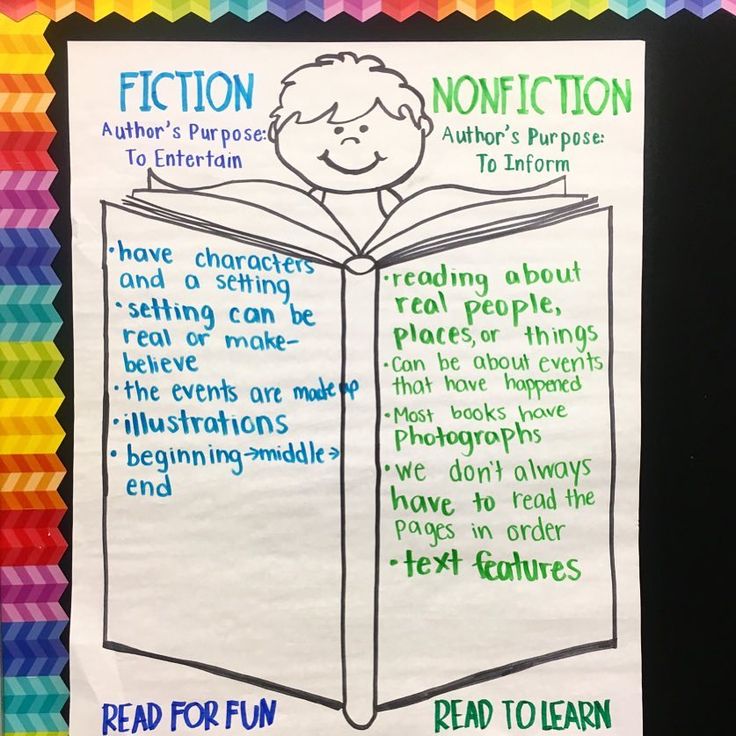 FICTION
Author's Purpose:
To Entertain
NONFICTION
Author's Purpose:
To Inform
•have characters
and a setting
•setting can be
real or make-
believe
•the events are made up
•illustrations
•beginning→middle→
end
•reading about
real people,
places, or things
•Can be about events
that have happened
•Most books have
photographs
•we don't always
have to read the
pages in order
•text features
READ FOR FUN
READ TO LEARN